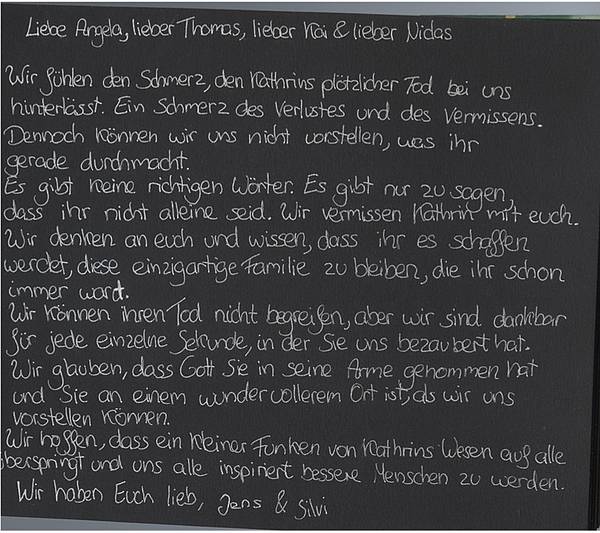 Liebe Angela, lieber Thomas, lieber Kai & lieber Niclas
Wir fühlen den Schmerz, den Kathrins plötzlicher Tod bei uns
hinterlässt. Ein Schmerz des Verlustes und des Vermissens.
Dennoch können wir uns nicht vorstellen, was ihr
gerade durchmacht.
Es gibt keine richtigen Wörter. Es gibt nur zu sagen,
dass ihr nicht alleine seid. Wir vermissen Kathrin mit euch.
Wir denken an euch und wissen, dass ihr es schaffen
werdet, diese einzigartige Familie zu bleiben, die ihr schon
immer ward.
Wir können ihren Tod nicht begreifen, aber wir sind dankbar
für jede einzelne Sekunde, in der Sie uns bezaubert hat.
Wir glauben, dass Gott Sie in seine Arme genommen hat
und Sie an einem wundervollerem Ort ist, als wir uns
vorstellen können.
Wir hoffen, dass ein kleiner Funken von Kathrins Wesen auf alle
überspringt und uns alle inspiriert bessere Menschen zu werden.
Wir haben Euch lieb, Jens & Silvi